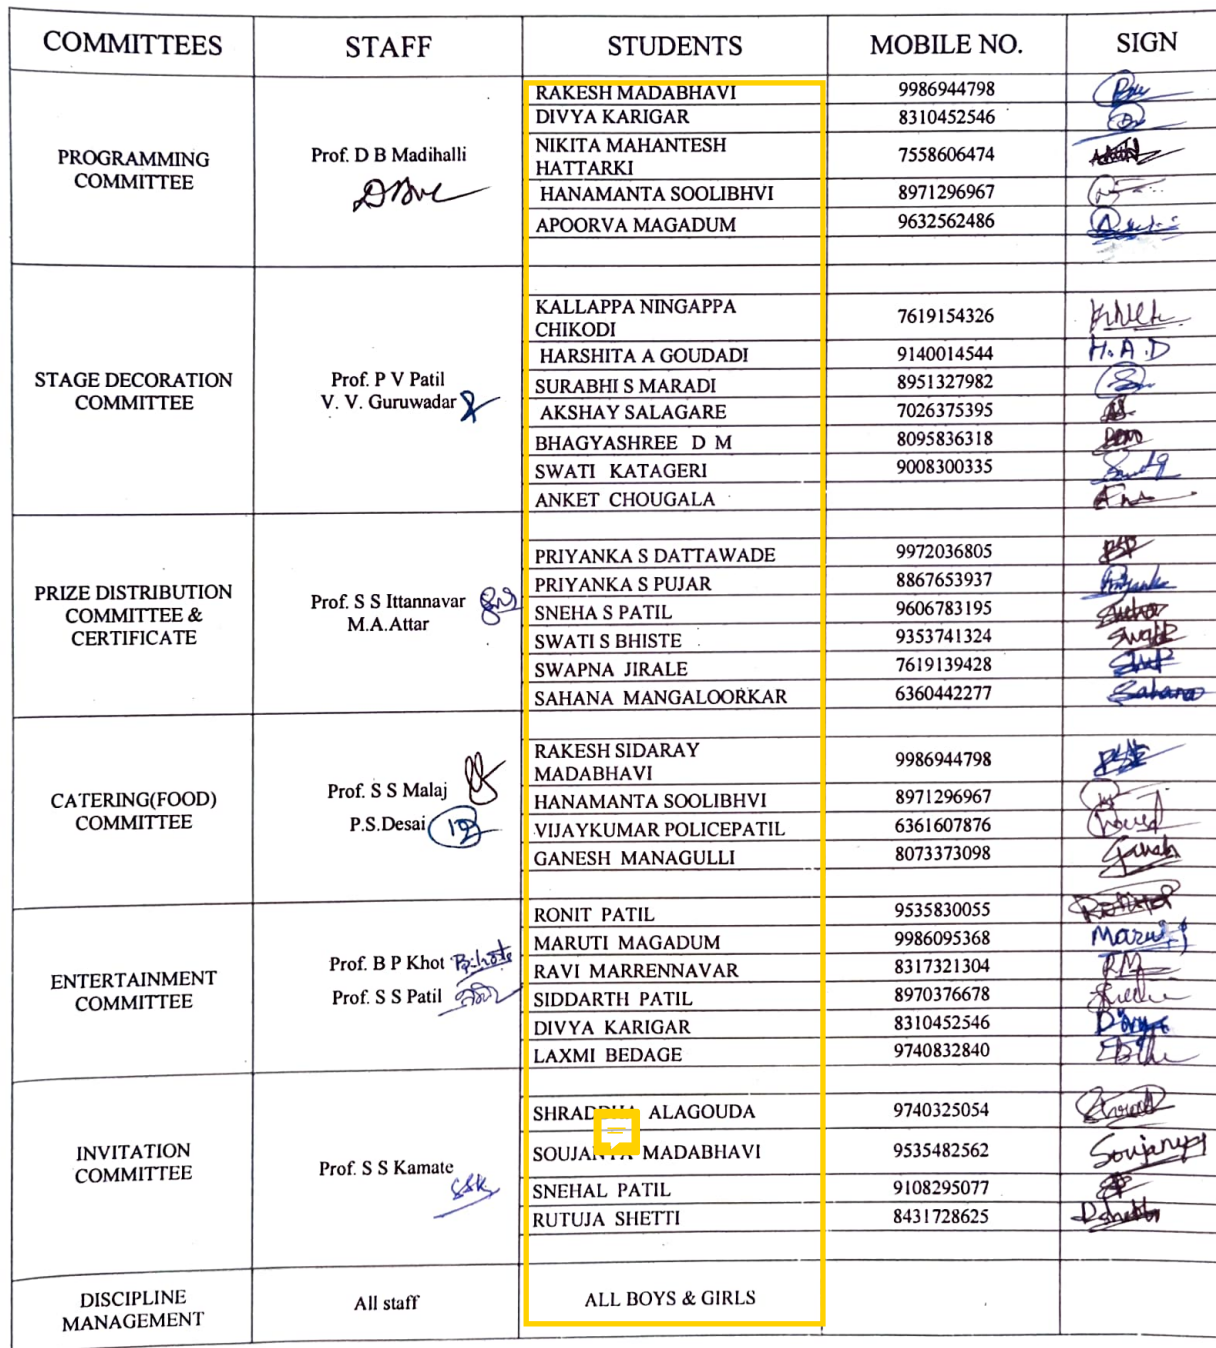 COMMITTEES STAFF STUDENTS MOBILE NO. SIGN
PROGRAMMING COMMITTEE
Prof. D B Madihalli
RAKESH MADABHAVI 9986944798
DIVYA KARIGAR 8310452546
NIKITA MAHANTESH
HATTARKI 7558606474
HANAMANTA SOOLIBHVI 8971296967
APOORVA MAGADUM 9632562486
STAGE DECORATION
COMMITTEE
Prof. P V Patil
V. V. Guruwadar
KALLAPPA NINGAPPA
CHIKODI 7619154326
HARSHITA A GOUDADI 9140014544 H.A.D
SURABHI S MARADI 8951327982
AKSHAY SALAGARE 7026375395
BHAGYASHREE D M 8095836318
SWATI KATAGERI 9008300335
ANKET CHOUGALA
PRIZE DISTRIBUTION
COMMITTEE &
CERTIFICATE
Prof. S S Ittannavar
M.A.Attar
PRIYANKA S DATTAWADE 9972036805
PRIYANKA S PUJAR 8867653937 Priyanka
SNEHA S PATIL 9606783195
SWATI S BHISTE 9353741324
SWAPNA JIRALE 7619139428
SAHANA MANGALOORKAR 6360442277 Sahana
CATERING(FOOD)
COMMITTEE
Prof. S S Malaj
P.S.Desai
RAKESH SIDARAY
MADABHAVI 9986944798
HANAMANTA SOOLIBHVI 8971296967
VIJAYKUMAR POLICEPATIL 6361607876
GANESH MANAGULLI 8073373098 Ganesh
ENTERTAINMENT
COMMITTEE
Prof. B P Khot
Prof. S S Patil
RONIT PATIL 9535830055
MARUTI MAGADUM 9986095368
RAVI MARRENNAVAR 8317321304 RM
SIDDARTH PATIL 8970376678
DIVYA KARIGAR 8310452546 Divya
LAXMI BEDAGE 9740832840
INVITATION
COMMITTEE
Prof. S S Kamate
SSK
SHRADDHA ALAGOUDA 9740325054
SOUJANYA MADABHAVI 9535482562 Soujanya
SNEHAL PATIL 9108295077
RUTUJA SHETTI 8431728625
DISCIPLINE
MANAGEMENT
All staff
ALL BOYS & GIRLS